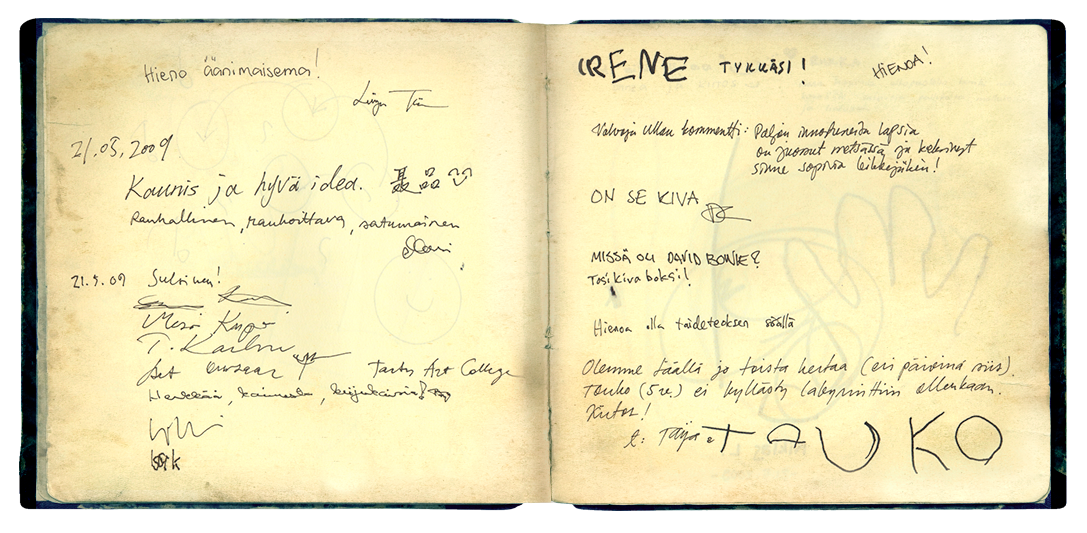 Hieno äänimaisema!
21.05.2009
Kaunis ja hyvä idea.
Rauhallinen, rauhoittava, satumainen
21.5.09 Suloinen!
Tartu Art College
IRENE TYKKÄSI!
HIENOA!
Valvoja Ullan kommentti: Paljon innostuneita lapsia
on juossut metsässä ja keksinyt
sinne sopivia leikkejäkin!
ON SE KIVA
MISSÄ OLI DAVID BOWIE?
Tosi kiva boksi!
Hienoa olla taideteoksen sisällä
Olemme täällä jo toista kertaa (eri päivinä siis).
Touko (5v.) ei kyllästy labyrinttiin ollenkaan.
Kiitos!
t: Taija & TAUKO